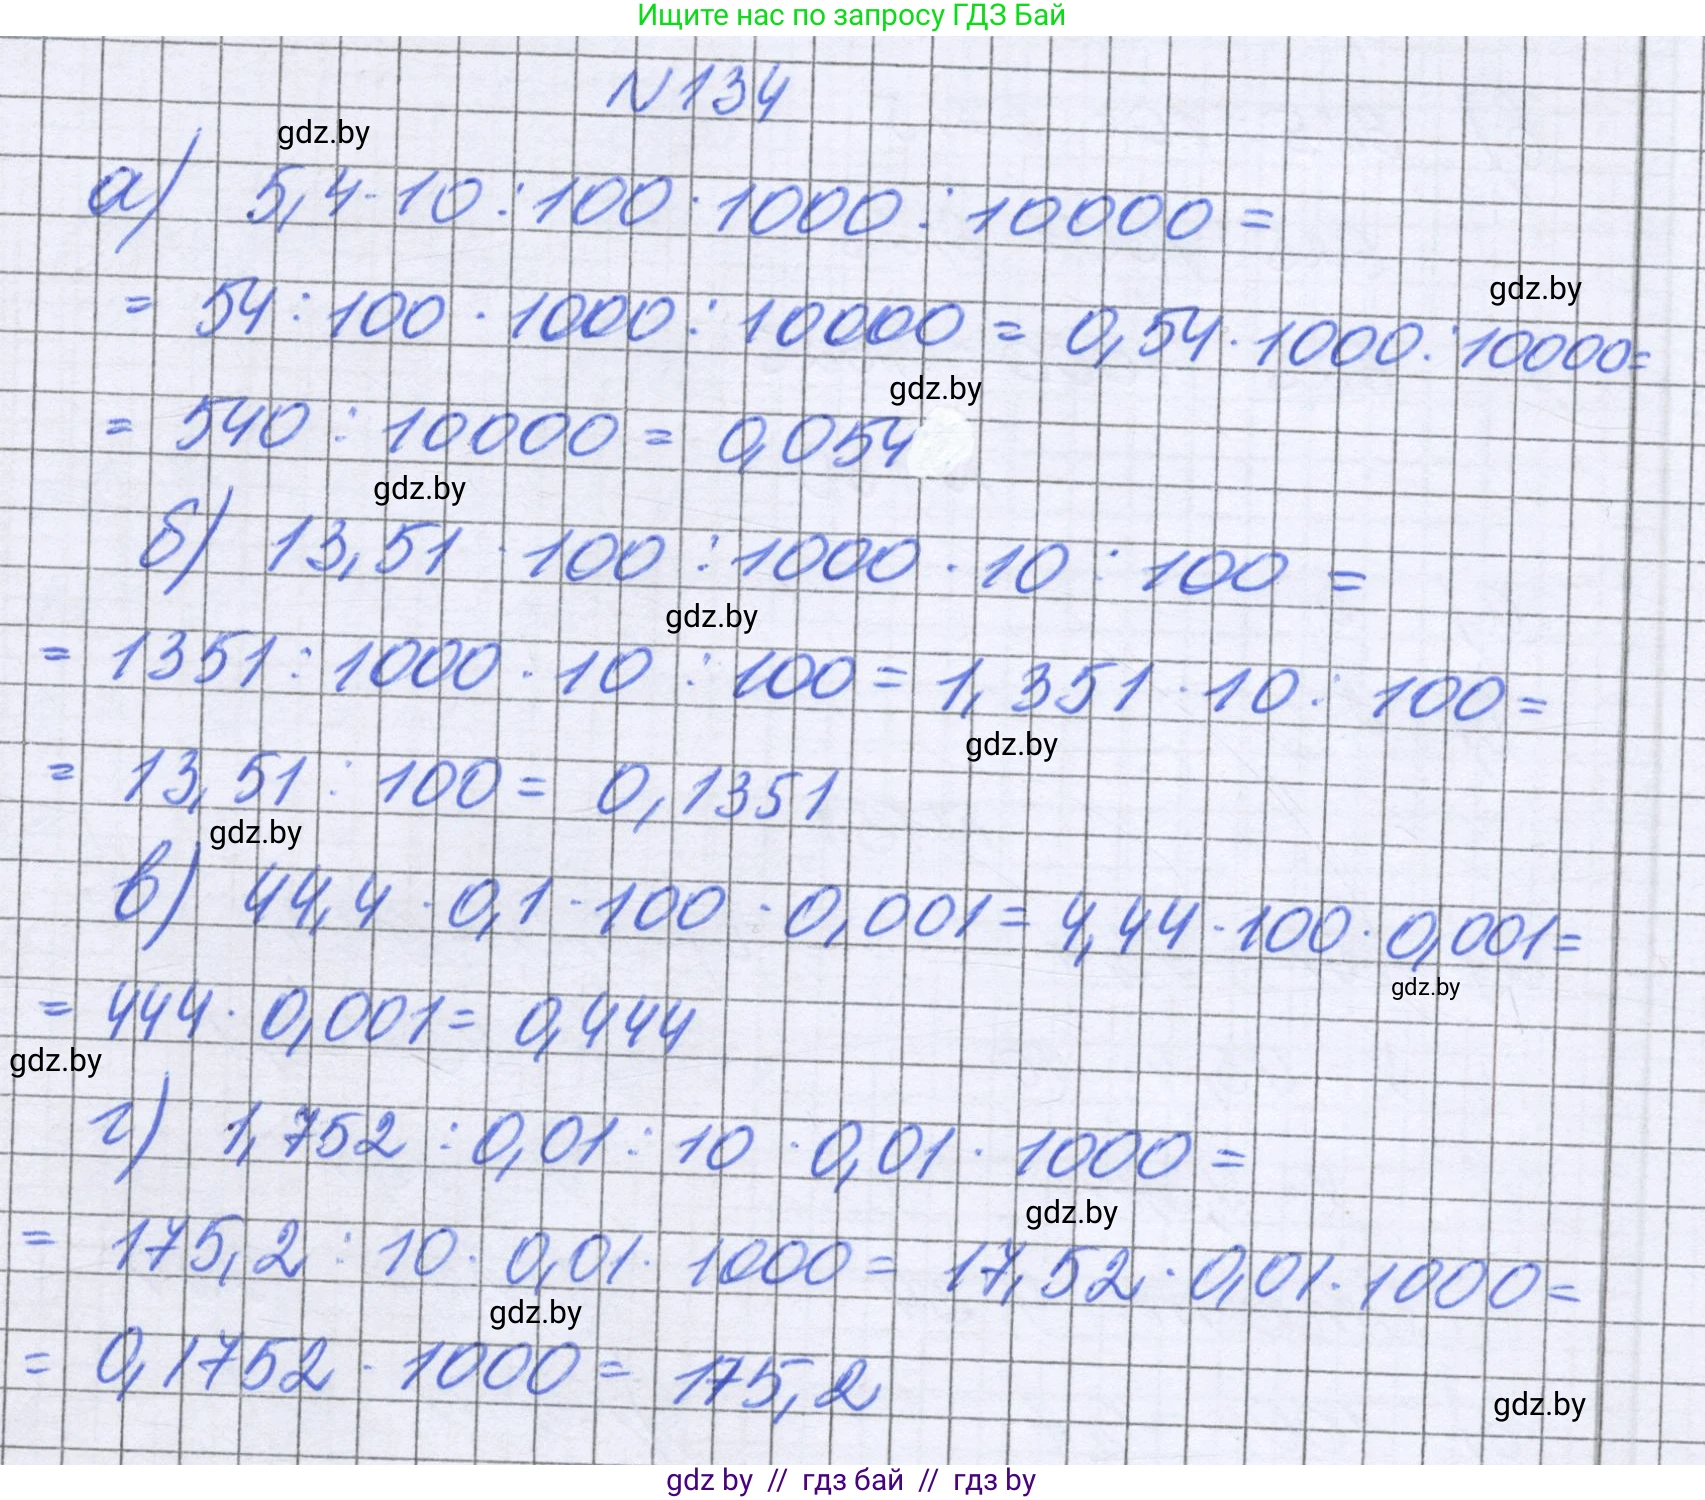 Ищите нас по запросу ГДЗ Бай
N134
gdz.by
а) 5,4·10:100·1000:10000=
gdz.by
= 54:100·1000:10000= 0,54·1000:10000=
gdz.by
= 540:10000= 0,054
gdz.by
б) 13,51·100:1000·10:100=
gdz.by
= 1351:1000·10:100= 1,351·10:100=
gdz.by
= 13,51:100= 0,1351
gdz.by
в) 44,4·0,1·100·0,001= 4,44·100·0,001=
gdz.by
= 444·0,001= 0,444
gdz.by
г) 1,752:0,01:10·0,01·1000=
gdz.by
= 175,2:10·0,01·1000= 17,52·0,01·1000=
gdz.by
= 0,1752·1000= 175,2
gdz.by
gdz by // гдз бай // гдз by